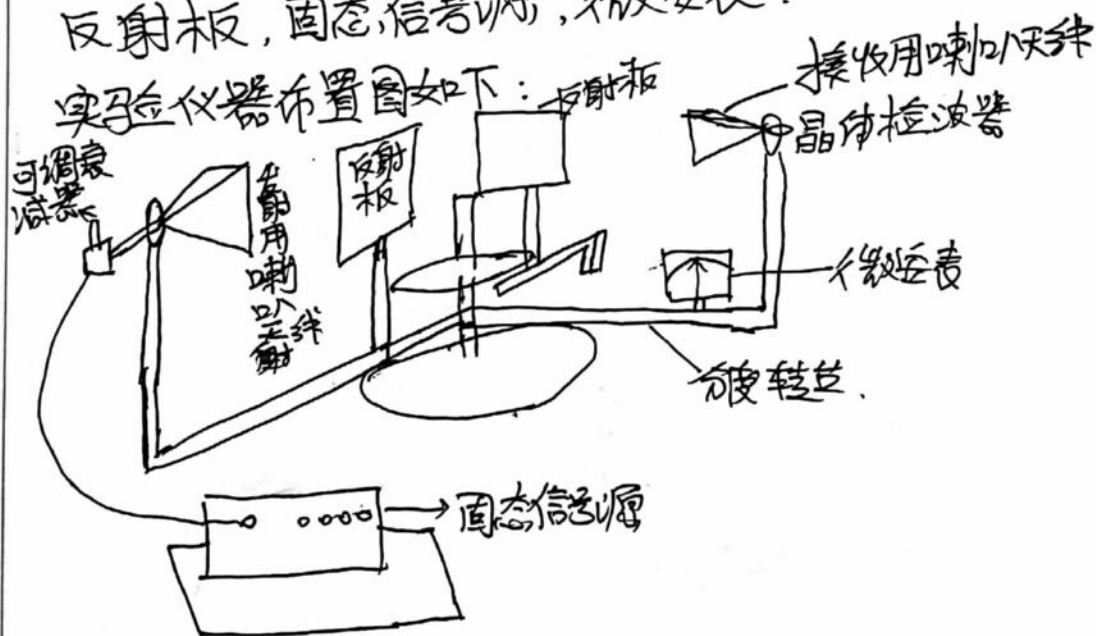 反射板,固态信号源,微安表.
实验仪器布置图如下:
反射板
接收用喇叭天线
晶体检波器
可调衰
减器
发射用喇叭天线
反射
板
微安表
分度转台.
固态信号源